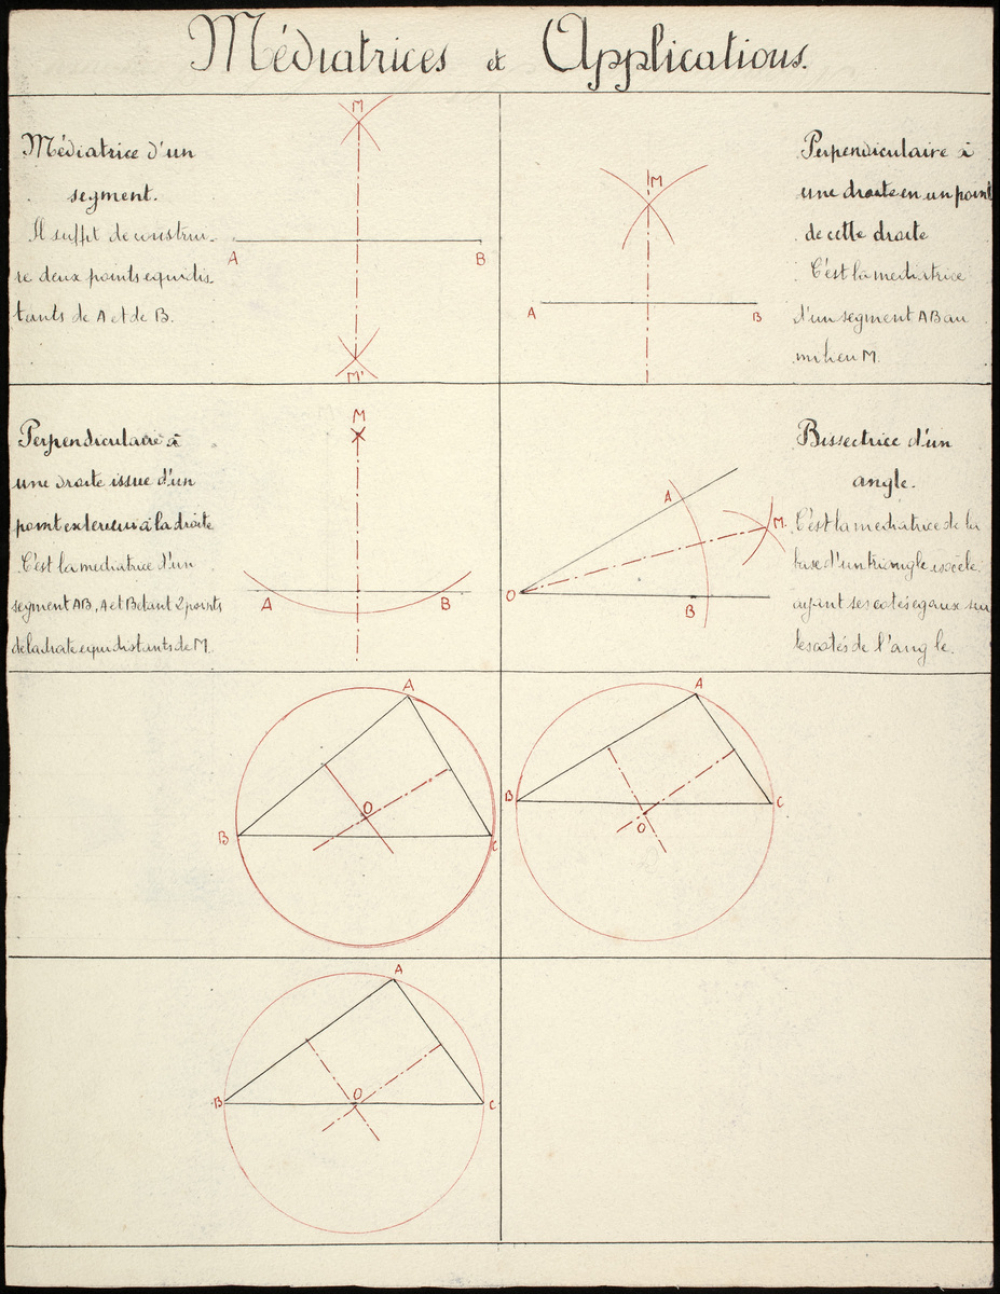 Médiatrices et Applications.
Médiatrice d'un
segment.
Il suffit de construi-
re deux points equidis-
tants de A et de B.
M
A
B
M'
Perpendiculaire à
une droite en un point
de cette droite
C'est la mediatrice
d'un segment AB au
milieu M.
M
A
B
Perpendiculaire à
une droite issue d'un
point exterieur à la droite
C'est la mediatrice d'un
segment AB, A et B etant 2 points
de la droite equidistants de M.
M
A
B
Bissectrice d'un
angle.
C'est la mediatrice de la
base d'un triangle isocèle
ayant ses cotés egaux sur
les cotés de l'angle.
A
M
O
B
A
O
B
C
A
B
C
O
A
O
B
C